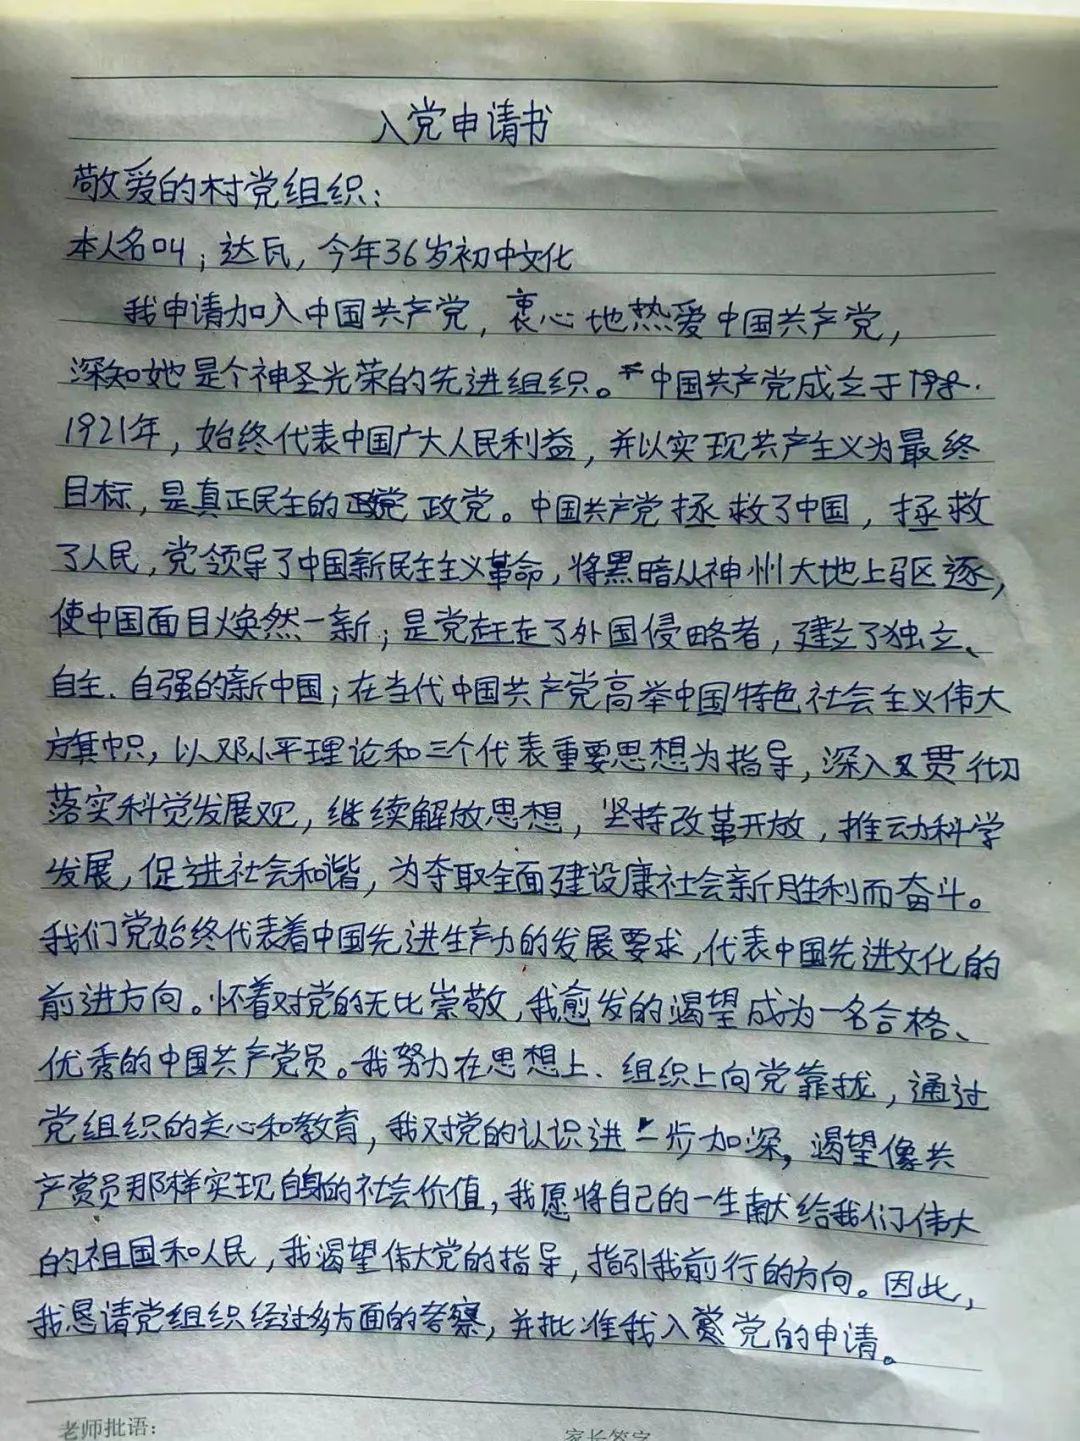 入党申请书
敬爱的村党组织：
本人名叫；达瓦，今年36岁初中文化
我申请加入中国共产党，衷心地热爱中国共产党，
深知她是个神圣光荣的先进组织。中国共产党成立于
1921年，始终代表中国广大人民利益，并以实现共产主义为最终
目标，是真正民主的政党。中国共产党拯救了中国，拯救
了人民，党领导了中国新民主主义革命，将黑暗从神州大地上驱逐，
使中国面目焕然一新；是党赶走了外国侵略者，建立了独立、
自主、自强的新中国；在当代中国共产党高举中国特色社会主义伟大
旗帜，以邓小平理论和三个代表重要思想为指导，深入贯彻
落实科觉发展观，继续解放思想，坚持改革开放，推动科学
发展，促进社会和谐，为夺取全面建设康社会新胜利而奋斗。
我们党始终代表着中国先进生产力的发展要求，代表中国先进文化的
前进方向。怀着对党的无比崇敬，我愈发的渴望成为一名合格、
优秀的中国共产党员。我努力在思想上、组织上向党靠拢，通过
党组织的关心和教育，我对党的认识进一步加深，渴望像共
产党员那样实现自身的社会价值，我愿将自己的一生献给我们伟大
的祖国和人民，我渴望伟大党的指导，指引我前行的方向。因此，
我恳请党组织经过多方面的考察，并批准我入党的申请。
老师批语：
家长签字